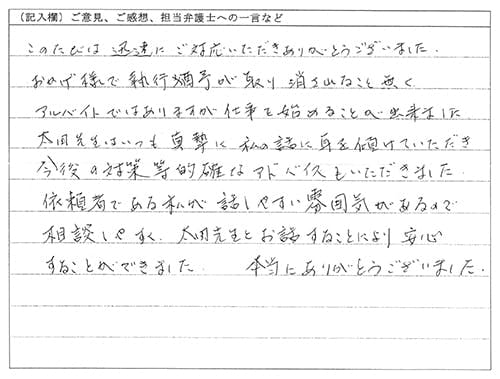 (記入欄)ご意見、ご感想、担当弁護士への一言など
このたびは迅速にご対応いただきありがとうございました.
おかげ様で執行猶予が取り消されること無く
アルバイトではありますが仕事を始めることが出来ました
太田先生はいつも真摯に私の話に耳を傾けていただき
今後の対策等的確なアドバイスもいただきました.
依頼者である私が話しやすい雰囲気があるので
相談しやすく、太田先生とお話することにより安心
することができました. 本当にありがとうございました.